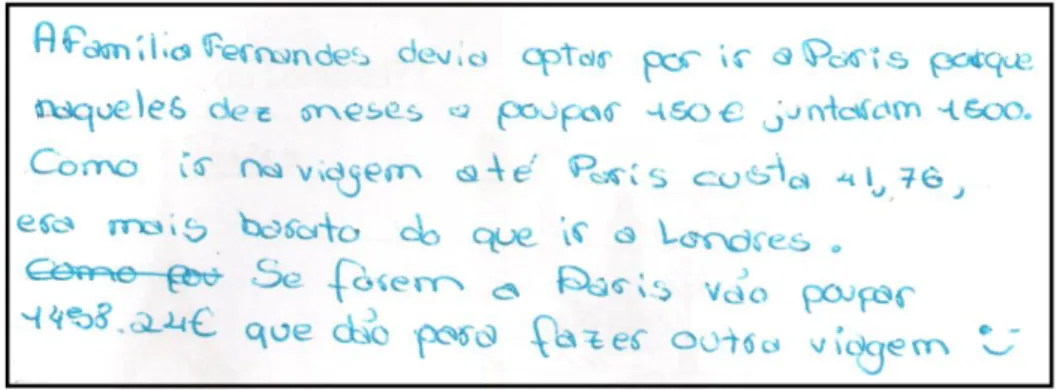 A família Fernandes devia optar por ir a Paris porque
naqueles dez meses a poupar 150€ juntaram 1500.
Como ir na viagem até Paris custa 41,76,
era mais barato do que ir a Londres.
Como pou Se forem a Paris vão poupar
1458.24€ que dão para fazer outra viagem :-)